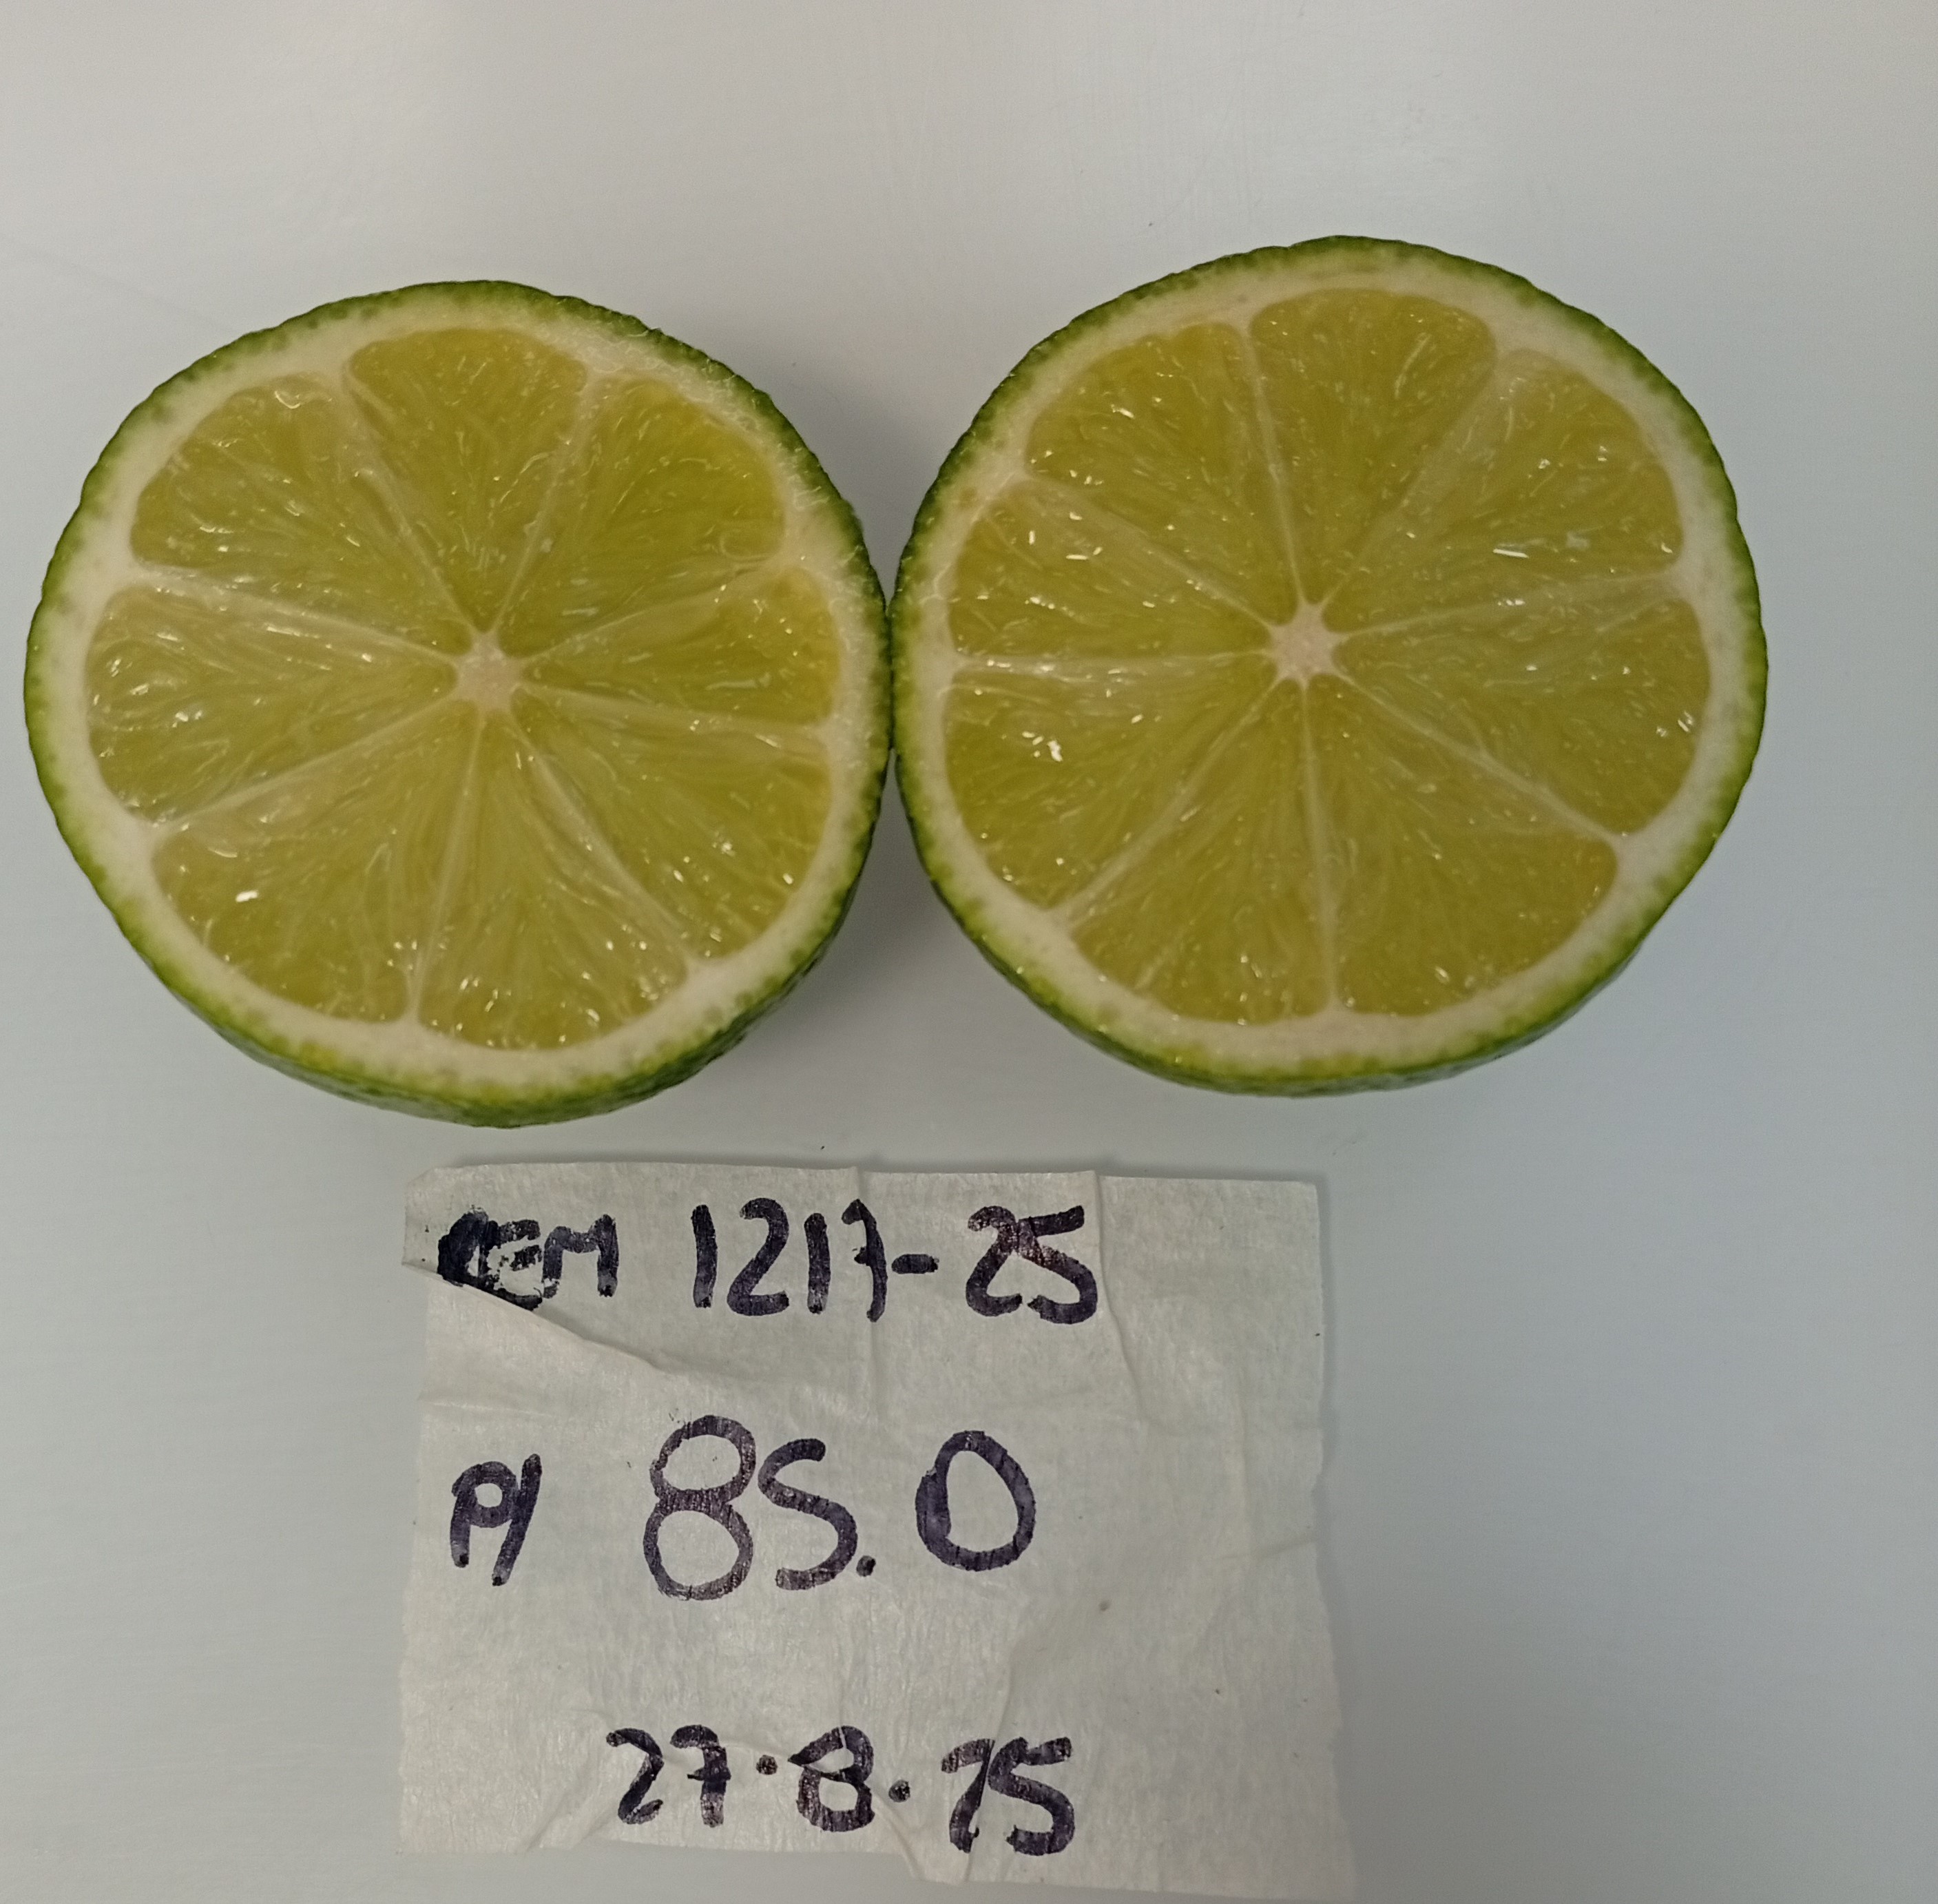 REM 1217-25
P/ 85.0
27.8.25